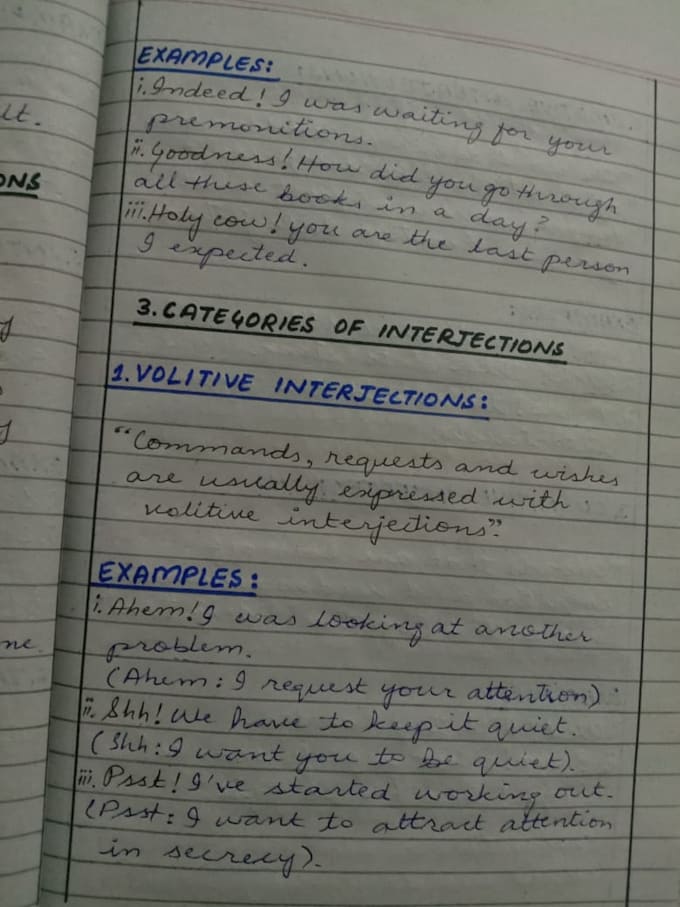 lt.
ONS
ne.
EXAMPLES:
i. Indeed! I was waiting for your
premonitions.
ii. Goodness! How did you go through
all these books in a day?
iii. Holy cow! you are the last person
I expected.
3. CATEGORIES OF INTERJECTIONS
1. VOLITIVE INTERJECTIONS:
"Commands, requests and wishes
are usually expressed with
volitive interjections".
EXAMPLES:
i. Ahem! I was looking at another
problem.
(Ahem: I request your attention)
ii. Shh! We have to keep it quiet.
(Shh: I want you to be quiet).
iii. Psst! I've started working out.
(Psst: I want to attract attention
in secrecy).